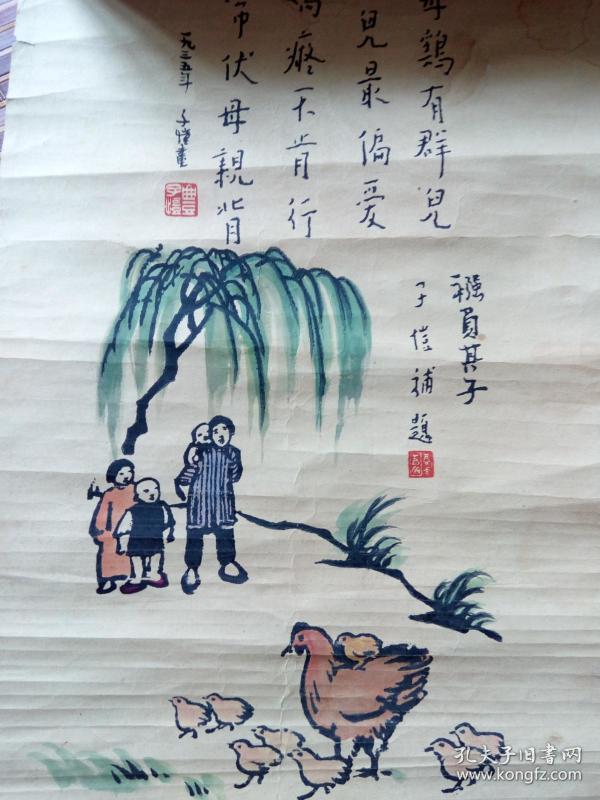 母鷄有群兒
兒最偏爱
癡不肯行
常伏母親背
一九三五年 子愷畫
豐子愷
襁負其子
子愷補題
孔夫子旧书网
www.kongfz.com